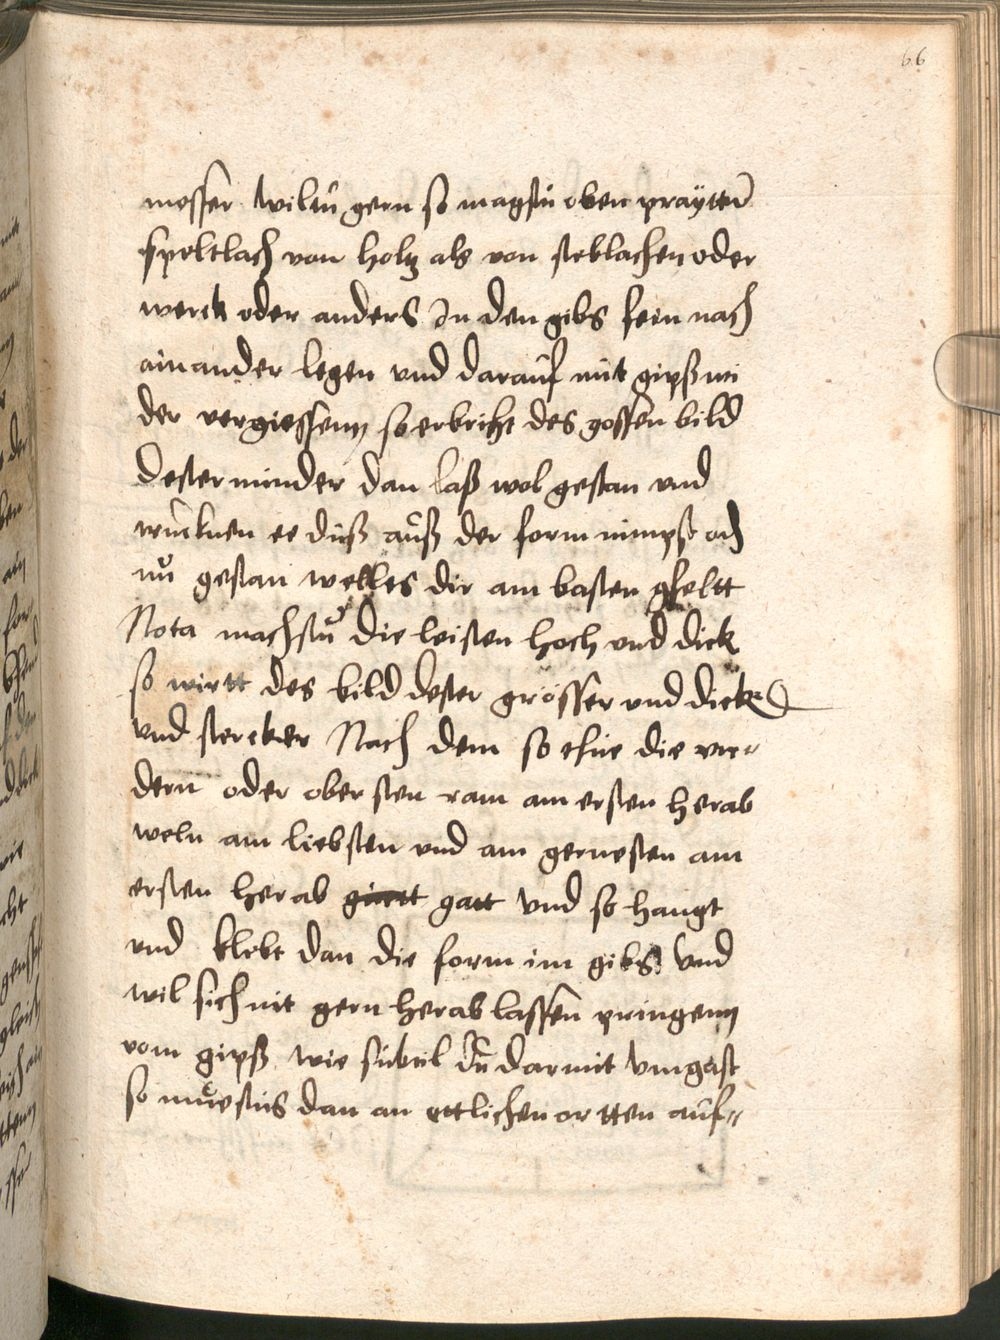 66
messer wiltu gern so magstu oben praytter
speltlach von holtz als von steblachen oder
werck oder anders In den gibs fein nach
ainander legen vnd darauf mit gipß wi
der vergiessenn so erbricht des gossen bild
dester minder dan laß wol gestan vnd
trucknen ee duß auß der form nimpst och
nu gestan welles dir am basten gfeltt
Nota machstu die leisten hoch vnd dick
so wirtt des bild dester grösser vnd dicker
vnd stercker Nach dem so ehue die vor
dern oder obersten ram am ersten herab
weln am liebsten vnd am gernesten am
ersten herab gatt vnd so hangt
vnd klebt dan die form im gibs vnd
wil sich nit gern herab lassen pringenn
vom gipß wie subtil du darmit vmgast
so muestus dan an ettlichen ortten auf